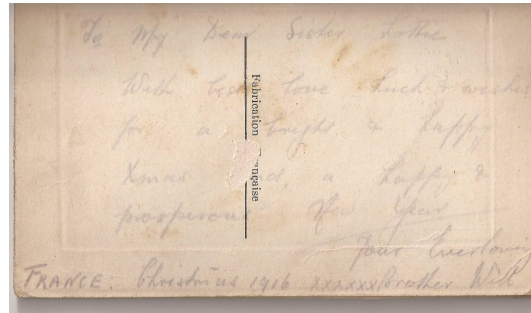 To My Dear Sister Lottie
With best love luck & wishes
for a bright & happy
Xmas and, a happy &
prosperous New Year
Your Everloving
FRANCE: Christmas 1916 xxxxxx Brother Will
Fabrication Française